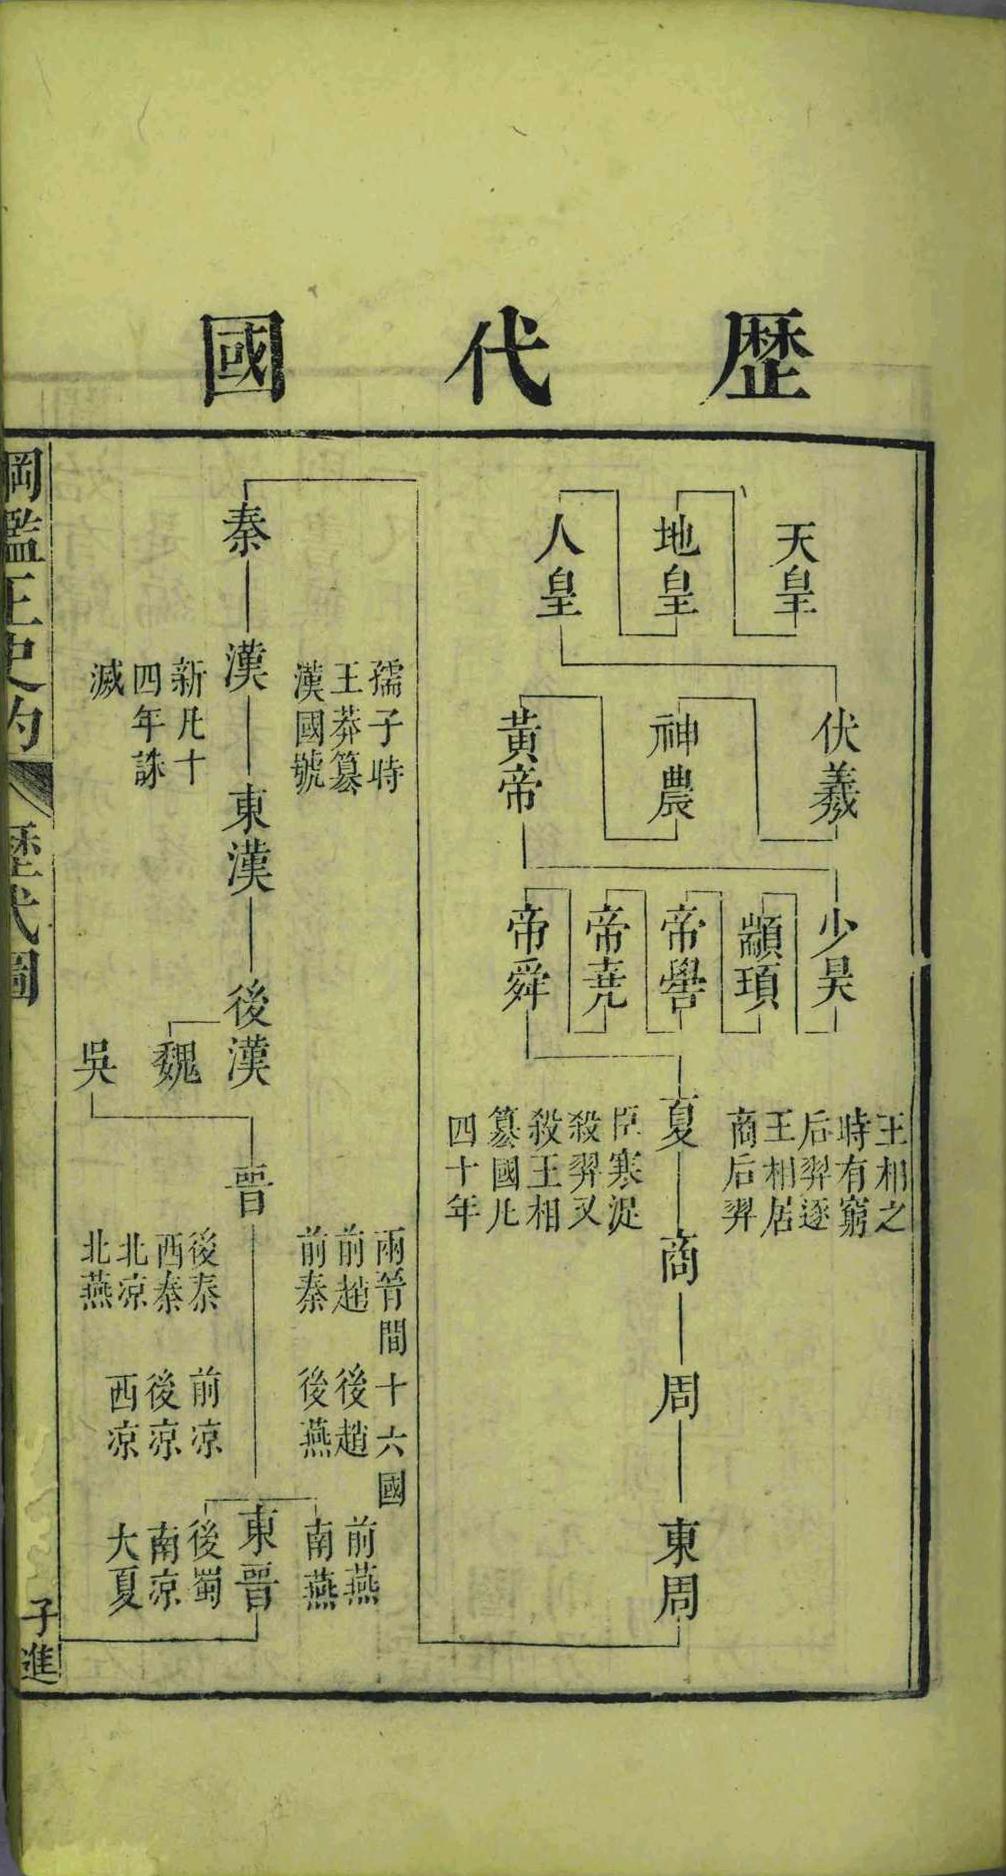 歷代國
天皇
地皇
人皇
伏羲
神農
黃帝
少昊
顓頊
帝嚳
帝堯
帝舜
夏
王相之
時有窮
后羿逐
王相居
商后羿
臣寒浞
殺羿又
殺王相
篡國凡
四十年
商
周
東周
秦
漢
孺子時
王莽篡
漢國號
新凡十
四年誅
滅
東漢
後漢
魏
吳
晉
兩晉間十六國
前趙 後趙 前燕
前秦 後燕 南燕
後秦 前涼 後蜀
西秦 後涼 南涼
北涼 西涼 大夏
北燕
東晉
綱鑑正史約
歷代圖
子進